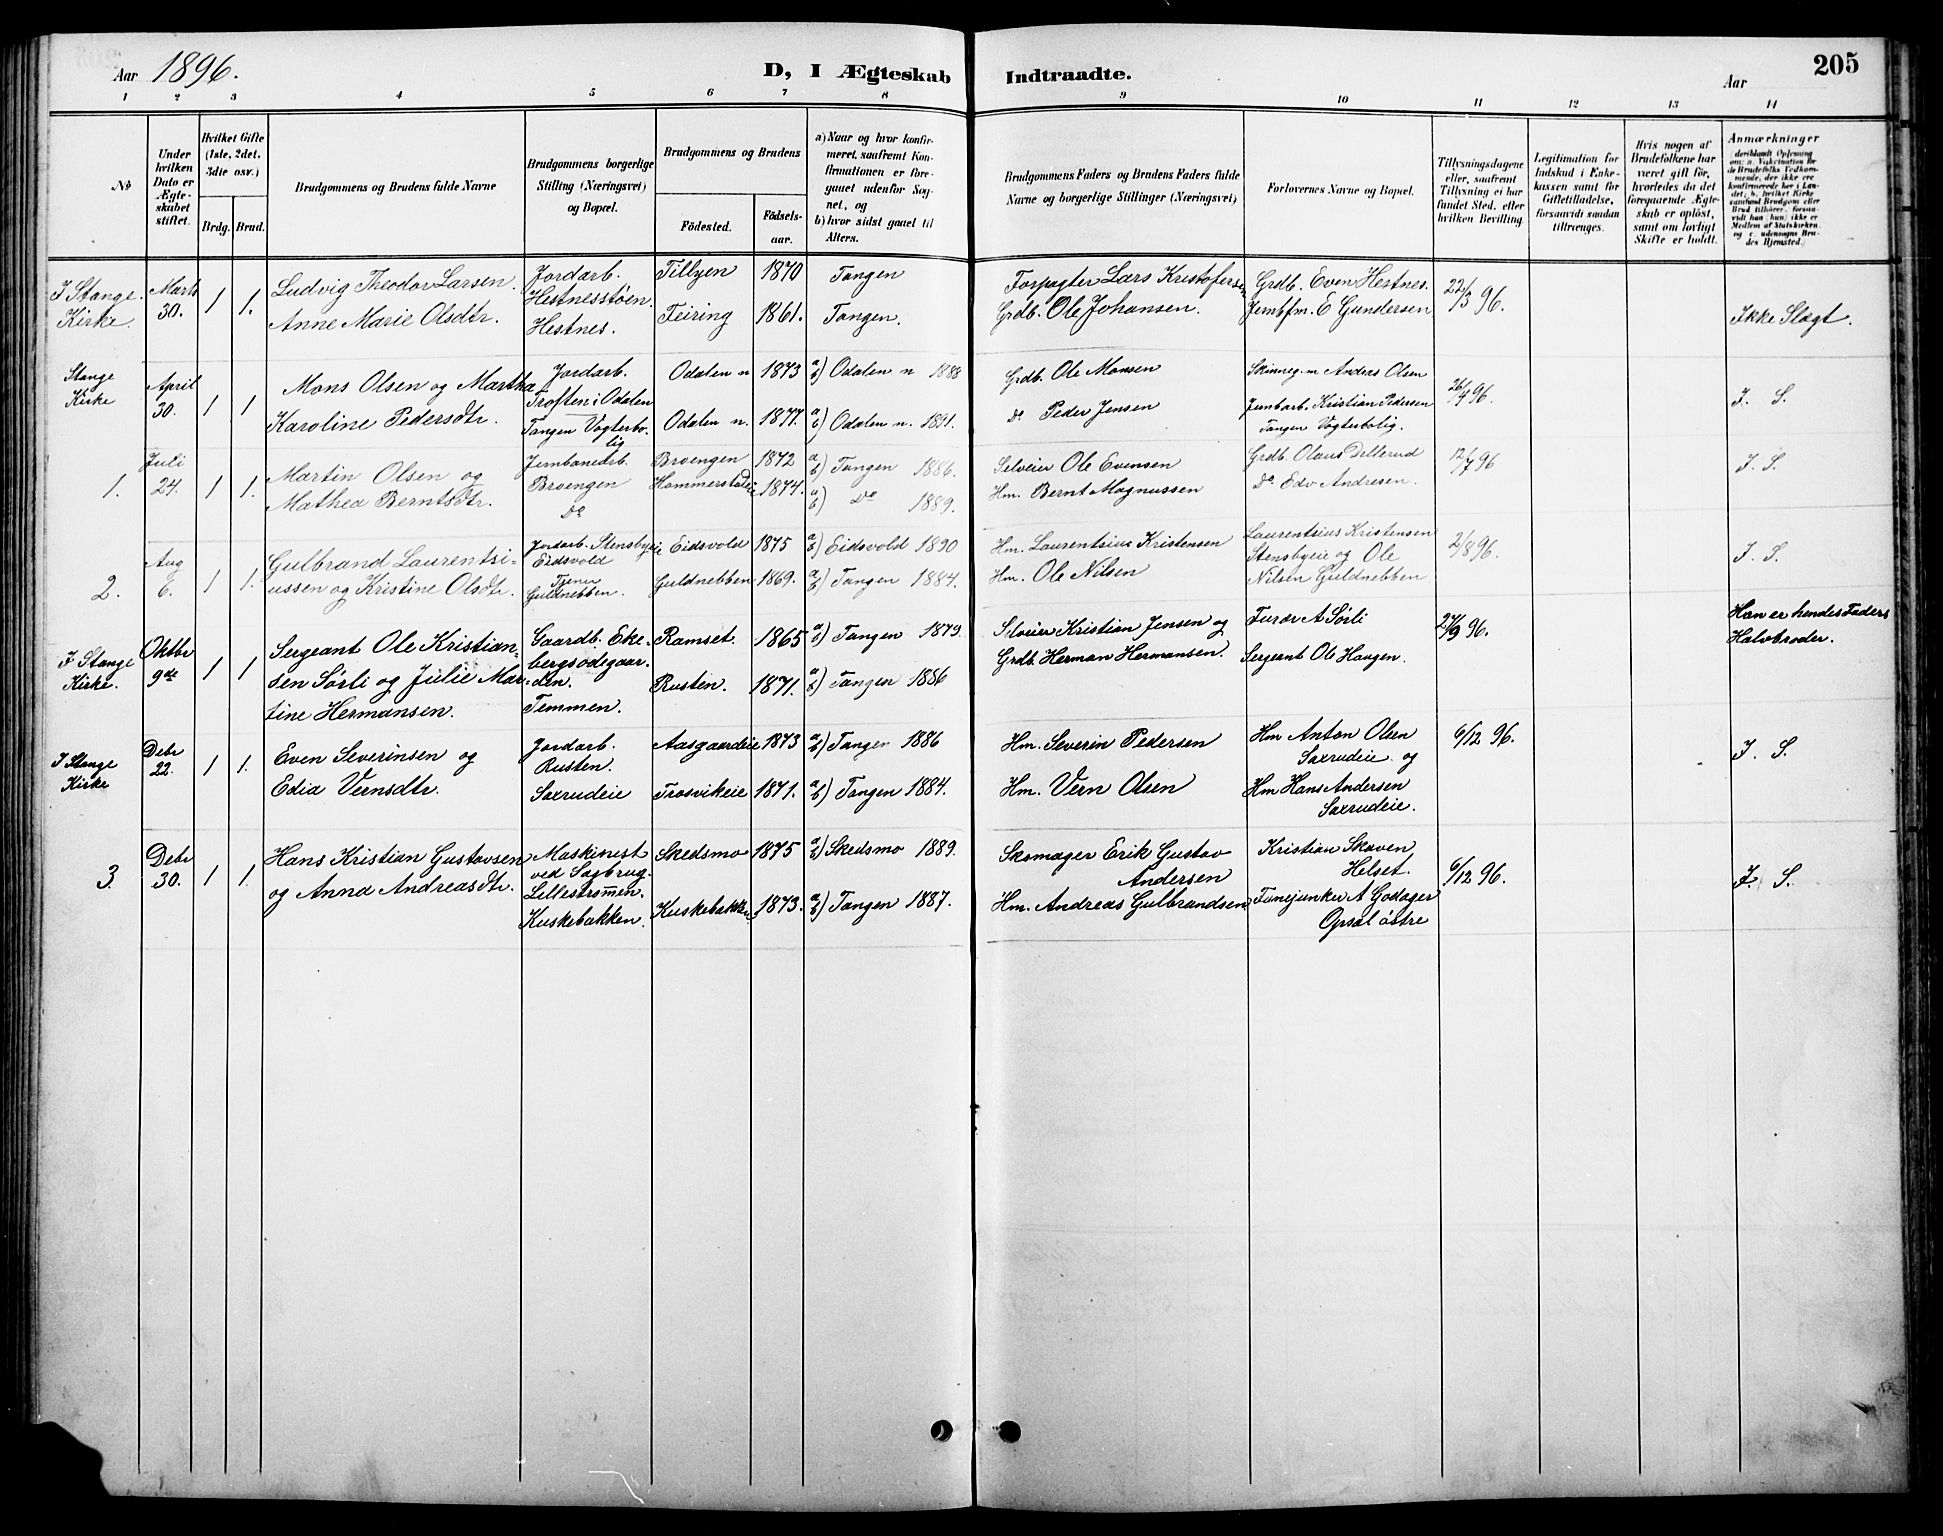 Aar 1896. D, I Ægteskab Indtraadte. Aar 205
1 2 3 4 5 6 7 8 9 10 11 12 13 14
No
Under hvilken Dato er Ægteskabet stiftet.
Hvilket Gifte (1ste, 2det, 3die osv.)
Brdg. Brud.
Brudgommens og Brudens fulde Navne
Brudgommens borgerlige Stilling (Næringsvei) og Bopæl.
Brudgommens og Brudens
Födested. Födsels-aar.
a) Naar og hvor konfirmeret, saafremt Konfirmationen er foregaaet udenfor Sognet, og
b) hvor sidst gaaet til Alters.
Brudgommens Faders og Brudens Faders fulde Navne og borgerlige Stillinger (Næringsvei)
Forlovernes Navne og Bopæl.
Tillysningsdagene eller, saafremt Tillysning ei har fundet Sted, efter hvilken Bevilling
Legitimation for Indskud i Enkekassen samt for Giftetilladelse, forsaavidt saadan tiltrænges.
Hvis nogen af Brudefolkene har været gift för, hvorledes da det foregaaende Ægteskab er oplöst, samt om lovligt Skifte er holdt.
Anmærkninger
I Stange Kirke. Marts 30. 1 1.
Ludvig Theodor Larsen.
Anne Marie Olsdtr.
Jordarb.
Hestnesstøen.
Hestnes.
Tillyen 1870 Tangen
Feiring 1861. Tangen.
Forpagter Lars Kristofersen
Grdb. Ole Johansen.
Grdb. Even Hestnes.
Jernbfm. E Gundersen
22/3 96.
Ikke Slægt.
Stange Kirke April 30. 1 1
Mons Olsen og Martha
Karoline Pedersdtr.
Jordarb.
Troften i Odalen
Tangen Vogterbolig
Odalen n 1873 a b) Odalen n 1888
Odalen n. 1877. a b) Odalen n. 1891.
Grdb. Ole Monsen
Do Peder Jensen
Skinneg.m Andreas Olsen
Jernbarb. Kristian Pedersen
Tangen Vogterbolig.
26/4 96.
I. S.
1. Juli 24. 1 1.
Martin Olsen og
Mathea Berntsdtr.
Jernbanearb.
Broengen
Do
Broengen 1872 a b) Tangen 1886.
Hommerstadeie 1874. a b) Do 1889.
Selveier Ole Evensen
Hm. Bernt Magnussen
Grdb. Olaus Dellerud
Do Edv Andresen.
12/7 96
I. S.
2. Aug 6. 1 1.
Gulbrand Laurentsi-
ussen og Kristine Olsdtr.
Jordarb. Stensbyeie
Eidsvold
Tjener
Guldnebben.
Eidsvold 1875 a b) Eidsvold 1890
Guldnebben 1869. a b) Tangen 1884.
Hm. Laurentsius Kristensen
Hm. Ole Nilsen
Laurentsius Kristensen
Stensbyeie og Ole
Nilsen Guldnebben
2/8 96.
I. S.
I Stange Kirke. Oktbr 9de 1 1
Sergeant Ole Kristian-
sen Sørli og Julie Mar-
tine Hermansen.
Gaardb. Eke-
bergsødegaar-
den.
Temmen.
Ramset. 1865 a b) Tangen 1879.
Rusten. 1871. a b) Tangen 1886
Selveier Kristian Jensen og
Grdb. Herman Hermansen.
Furør A Sørli
Sergeant Ole Haugen.
27/9 96.
Han er hendes Faders
Halvbroder.
I Stange Kirke Debr 22. 1 1.
Even Severinsen og
Edia Vernsdtr.
Jordarb.
Rusten.
Saxrudeie
Aasgaardeie 1873 a b) Tangen 1886
Trosvikeie 1871. a b) Tangen 1884.
Hm. Severin Pedersen
Hm. Vern Olsen
Hm Anton Olsen
Saxrudeie og
Hm Hans Andersen
Saxrudeie.
6/12 96.
I. S.
3. Debr 30. 1 1.
Hans Kristian Gustavsen
og Anna Andreasdtr.
Maskinist
ved Sagbrug.
Lillestrømmen.
Kuskebakken.
Skedsmo 1875 a b) Skedsmo 1889.
Kuskebakken 1873. a b) Tangen 1887.
Skomager Erik Gustav
Andersen
Hm. Andreas Gulbrandsen
Kristian Skaven
Helset.
Fanejunker A Godager
Opsal östre
6/12 96.
I. S.